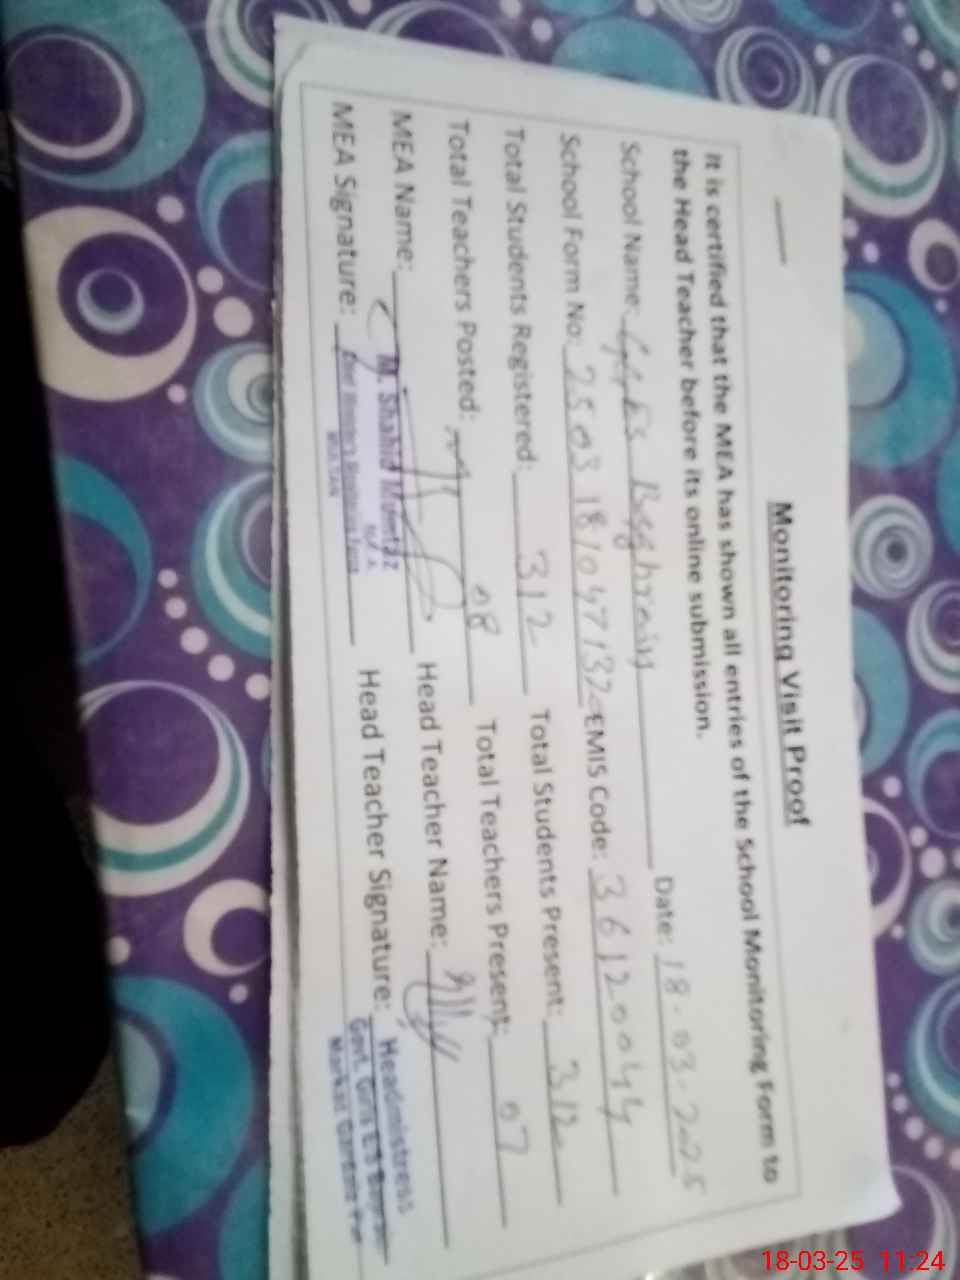 Monitoring Visit Proof
It is certified that the MEA has shown all entries of the School Monitoring Form to
the Head Teacher before its online submission.
School Name: Date: 18-03-2025
School Form No: EMIS Code: 36120044
Total Students Registered: 312 Total Students Present: 312
Total Teachers Posted: 08 Total Teachers Present: 07
MEA Name: Head Teacher Name:
MEA Signature: Head Teacher Signature:
M. Shahid Mumtaz
Headmistress
Govt. Girls E/S
18-03-25 11:24